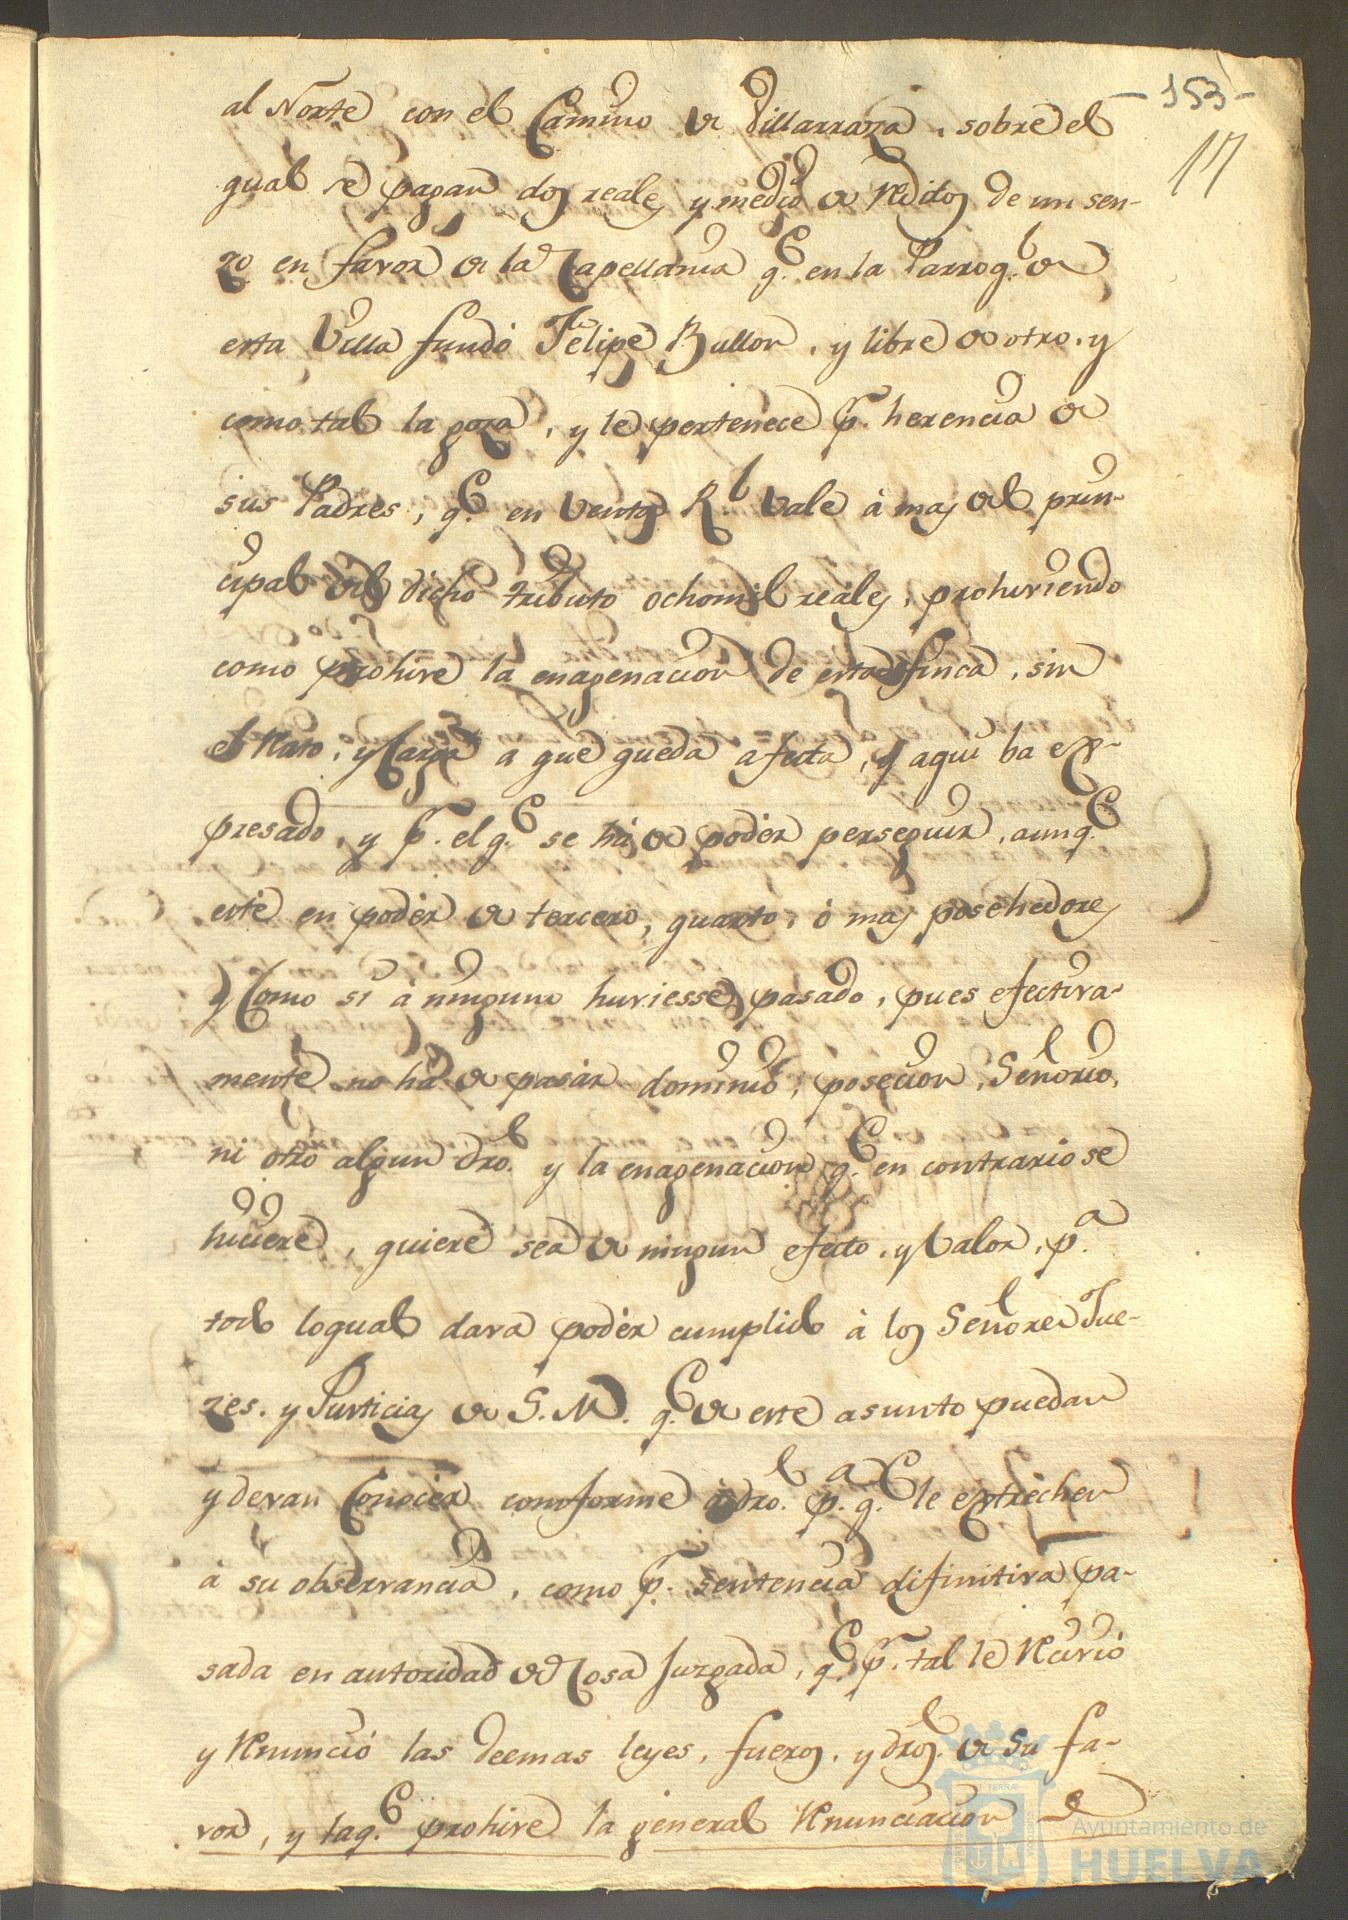 - 153 -
17
al Norte con el Camino de Villarraza, sobre el
qual se pagan dos reales y medio de Reditos de un sen-
zo en favor de la Capellania q.e en la Parroq.l de
esta Villa fundó Felipe Bullon, y libre de otro, y
como tal la goza, y le pertenece p.r herencia de
sus Padres, q.e en Venta R.l Vale à mas del prin-
cipal del dicho tributo ochomil reales, prohiviendo
como prohive la enagenacion de esta finca, sin
el Nato, y Carga a que queda afecta, y aqui ba ex-
presado, y p.r el q.e se ha de poder perseguir, aunq.e
esté en poder de tercero, quarto, ò mas posehedores
y Como si à ninguno huviesse pasado, pues efectiva-
mente no ha de pasar dominio, posecion, Señorio,
ni otro algun dro. y la enagenacion q.e en contrario se
hiciere, quiere sea de ningun efecto, y Valor, p.a
todo loqual dava poder cumplido à los Señores Jue-
zes, y Justicias de S. M. q.e de este asunto puedan
y devan Conocer comforme à dro. p.a q.e le extrechen
à su observancia, como p.r sentencia difinitiva pa-
sada en autoridad de Cosa Juzgada, q.e p.r tal le Recivió
y Renunció las deemas leyes, fueros, y dros. de su fa-
vor, y la q.e prohive la general Renunciacion
Ayuntamiento de
HUELVA